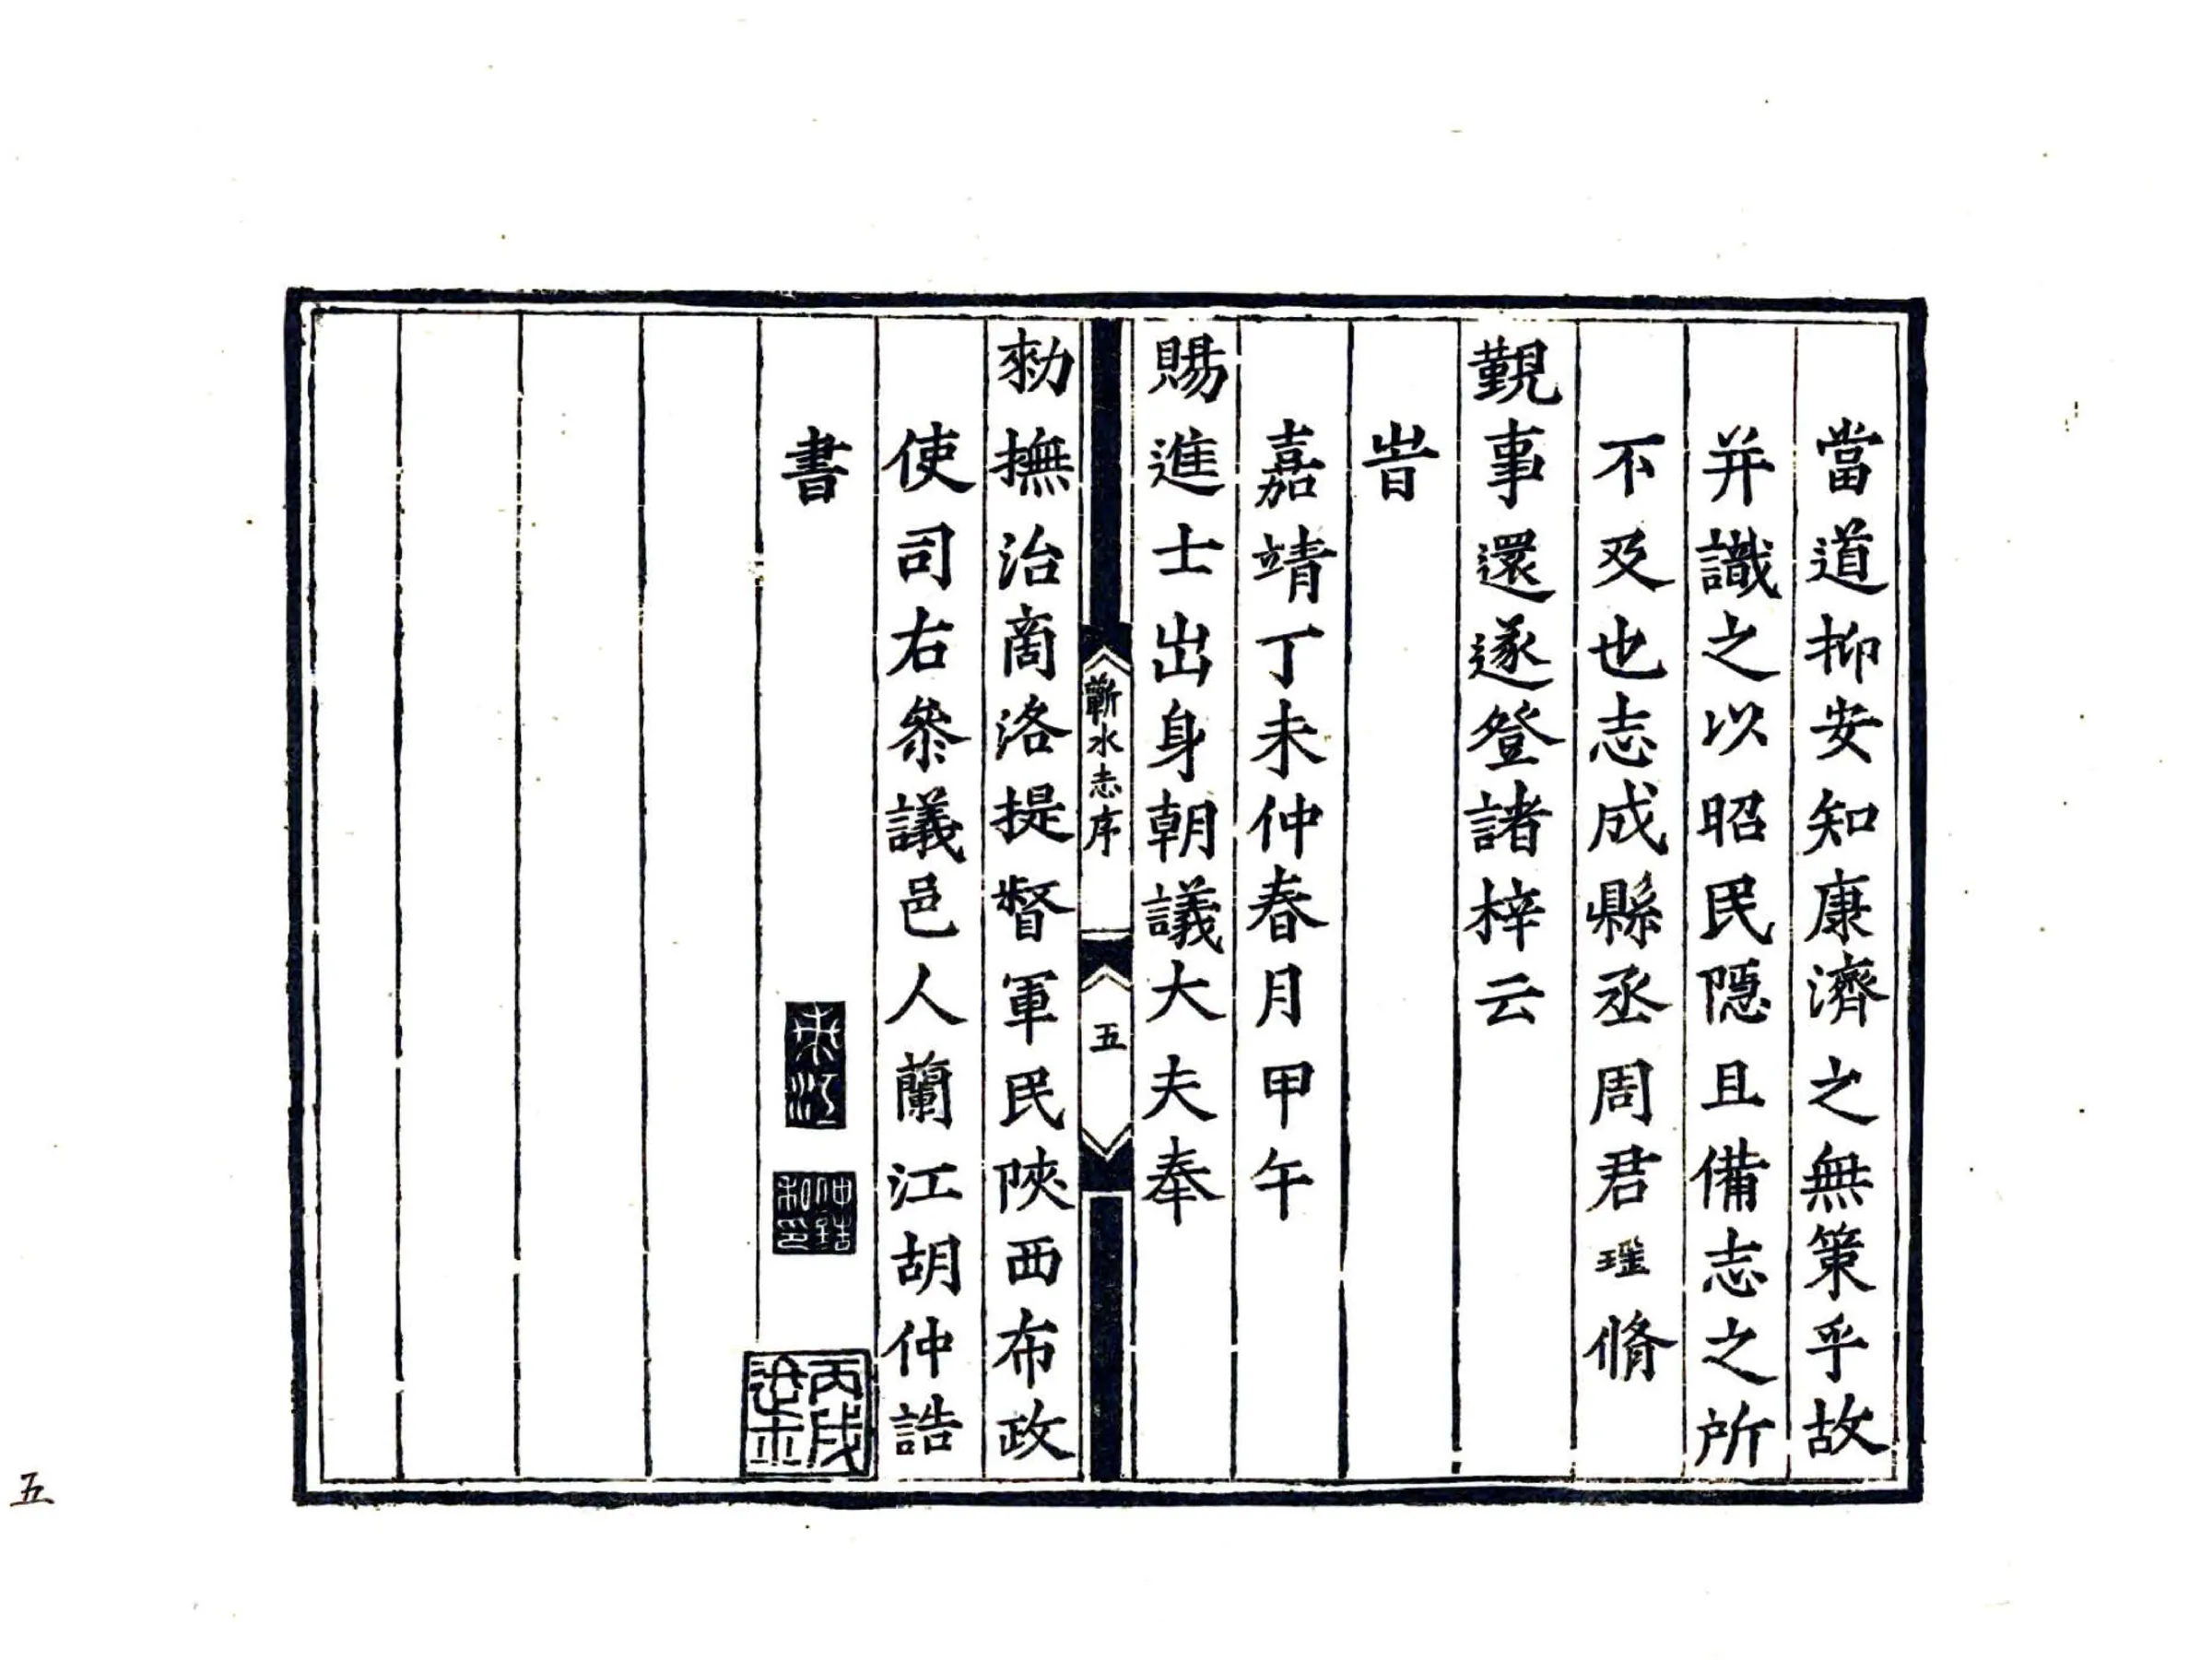 當道抑安知康濟之無策乎故
并識之以昭民隱且備志之所
不及也志成縣丞周君瑶脩
覲事還遂登諸梓云
旹
嘉靖丁未仲春月甲午
賜進士出身朝議大夫奉
蘄水志序
五
勑撫治商洛提督軍民陝西布政
使司右叅議邑人蘭江胡仲誥
書
丙戌進士
五